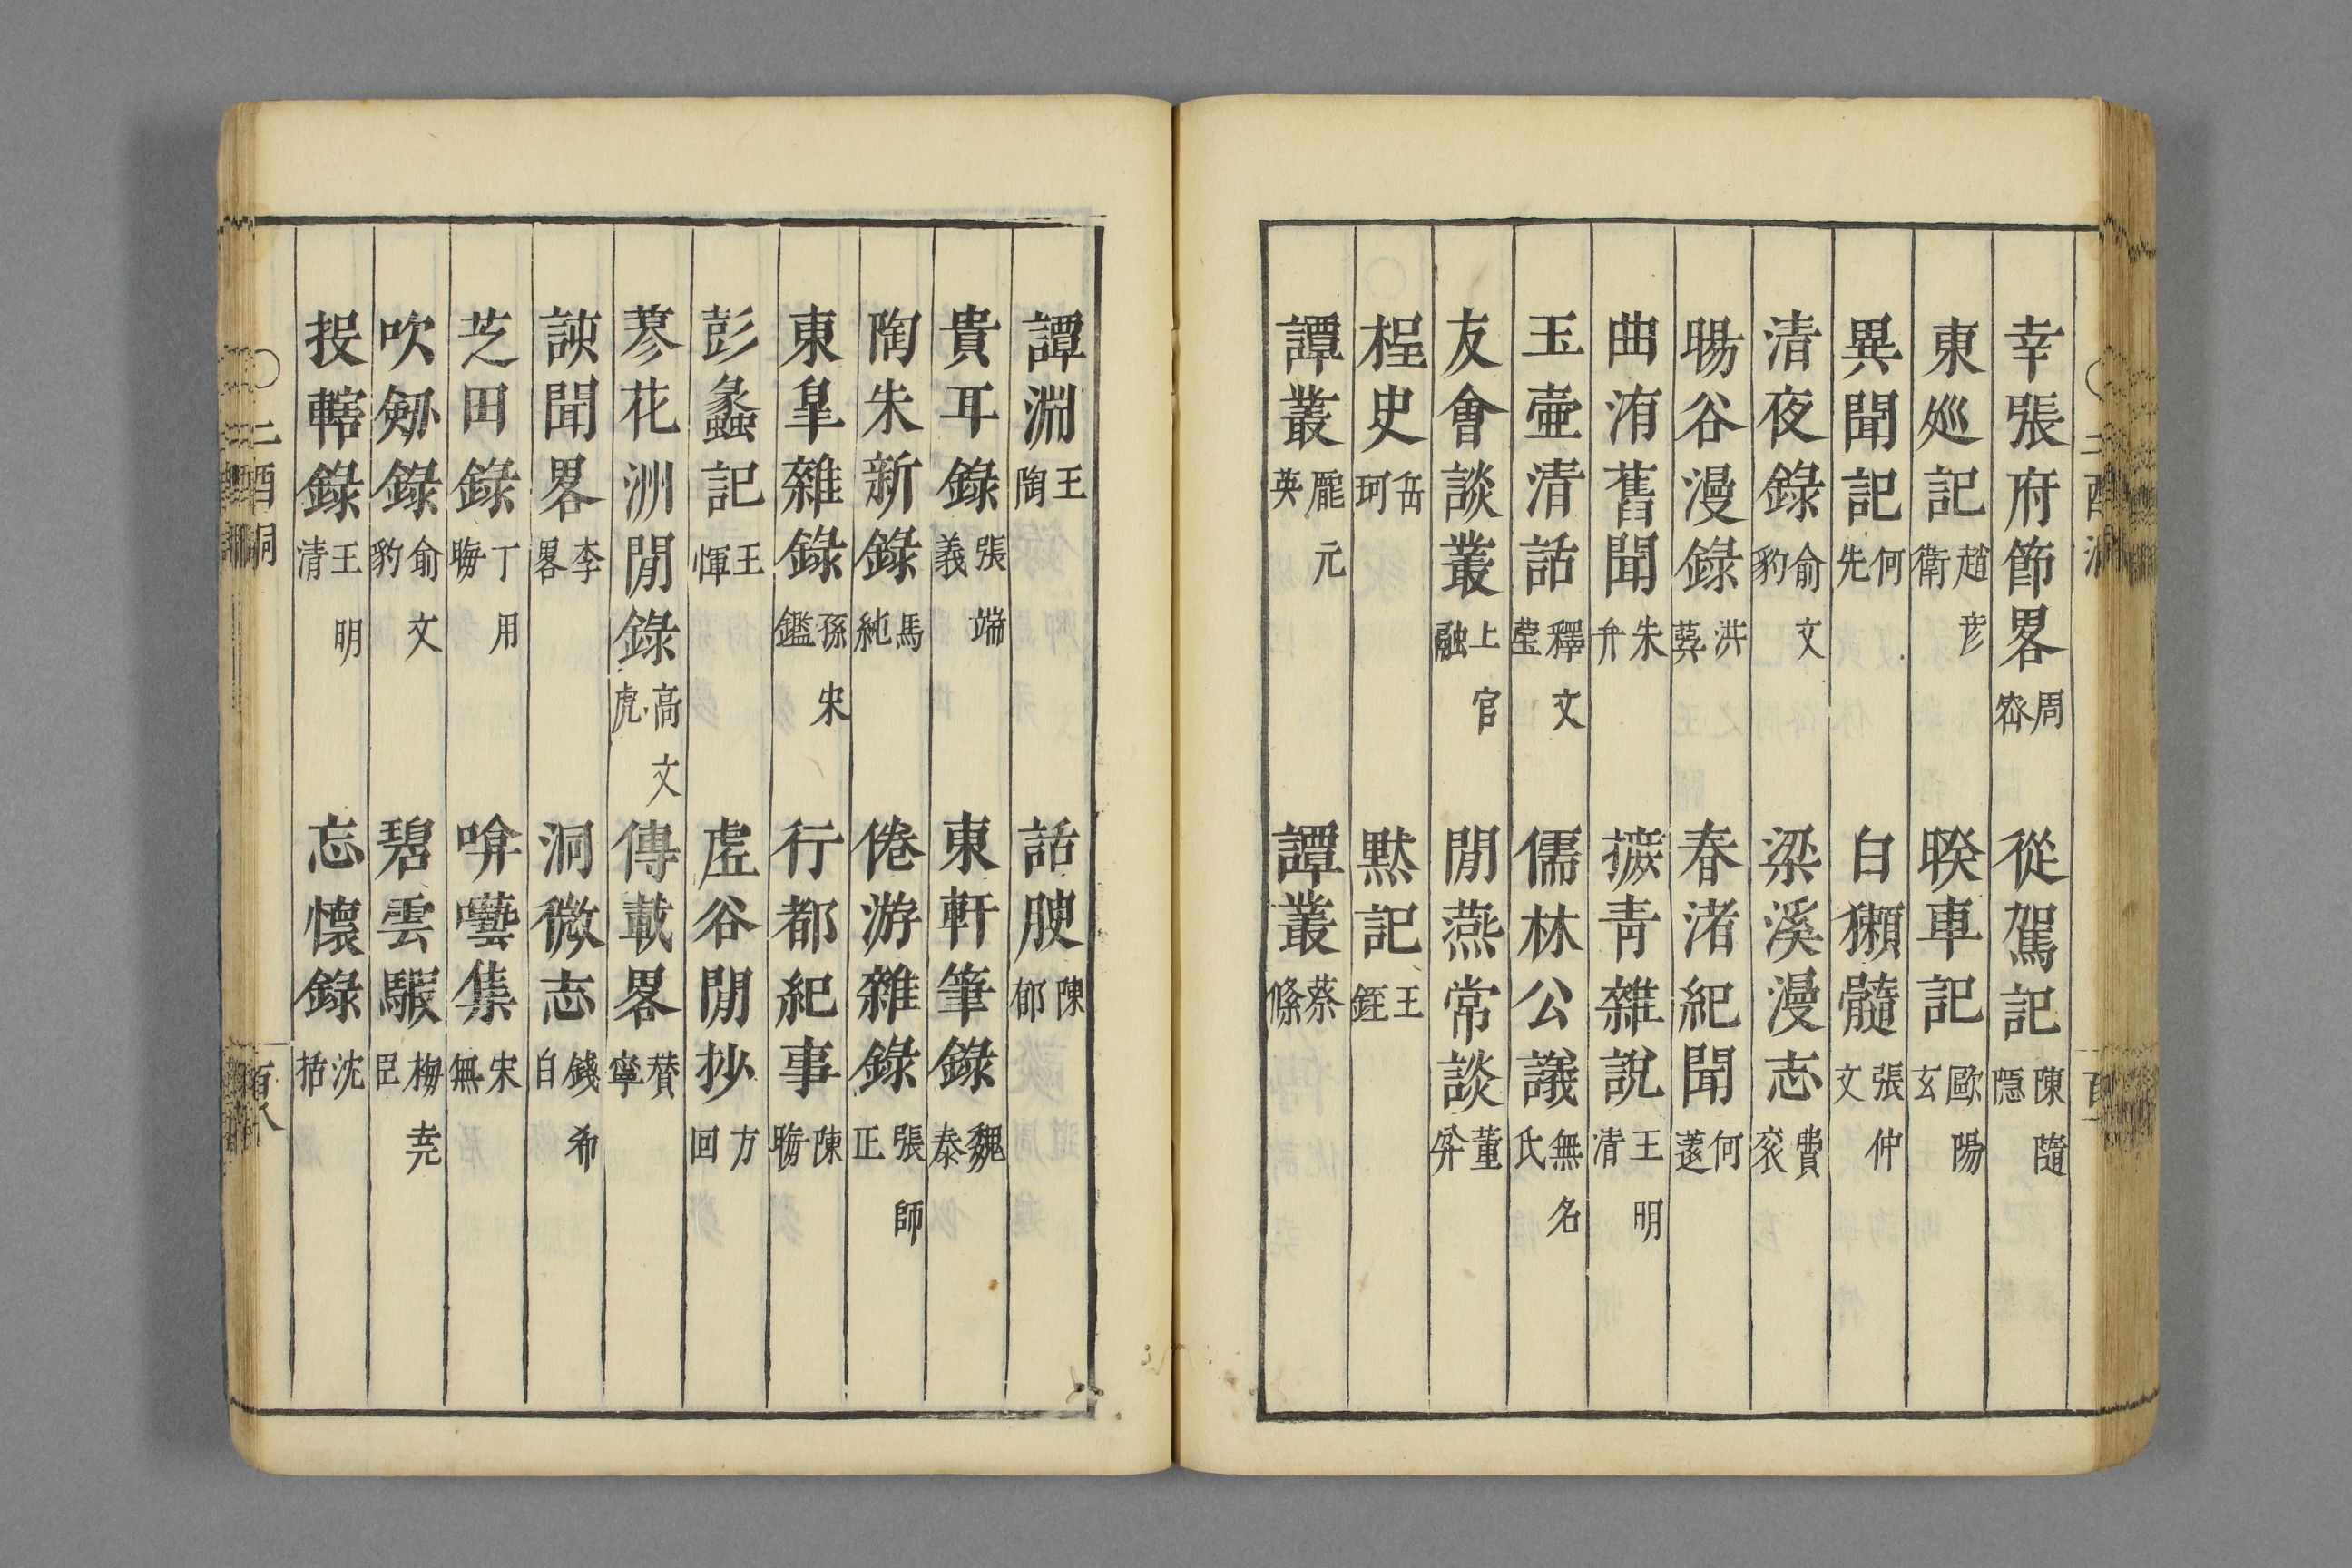 幸張府節畧 周密 從駕記 陳隨隱
東廵記 趙彥衛 暌車記 歐陽玄
異聞記 何先 白獺髓 張仲文
清夜錄 俞文豹 梁溪漫志 費袞
暘谷漫錄 洪巽 春渚紀聞 何薳
曲洧舊聞 朱弁 摭青雜說 王明清
玉壷清話 釋文瑩 儒林公議 無名氏
友會談叢 上官融 閒燕常談 董弅
桯史 岳珂 默記 王銍
譚叢 龐元英 譚叢 蔡絛
譚淵 王陶 話腴 陳郁
貴耳錄 張端義 東軒筆錄 魏泰
陶朱新錄 馬純 倦游雜錄 張師正
東皐雜錄 孫宋鑑 行都紀事 陳晦
彭蠡記 王惲 虗谷閒抄 方回
蓼花洲閒錄 高文虎 傳載畧 贊寧
諛聞畧 李畧 洞微志 錢希白
芝田錄 丁用晦 啽囈集 宋無
吹劒錄 俞文豹 碧雲騢 梅堯臣
投轄錄 王明清 忘懷錄 沈括
二酉洞 一百八